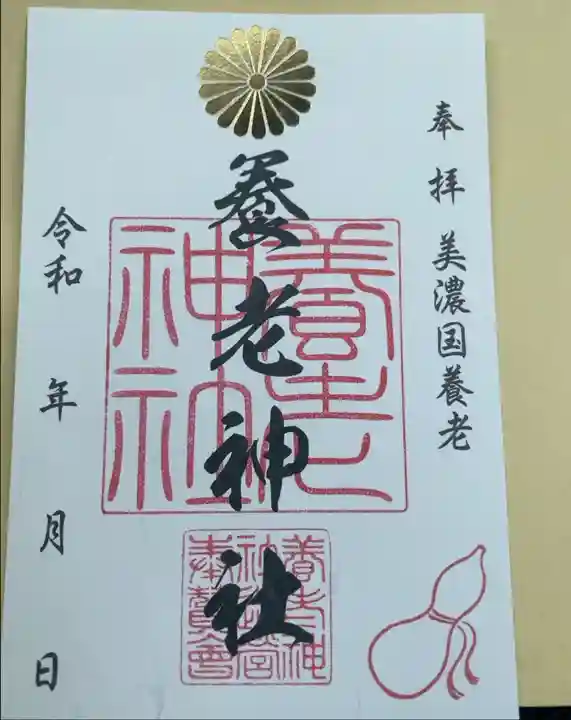 奉拝 美濃国養老
養老神社
養老
神社
養老神
社運営
奉賛会
令和 年 月 日